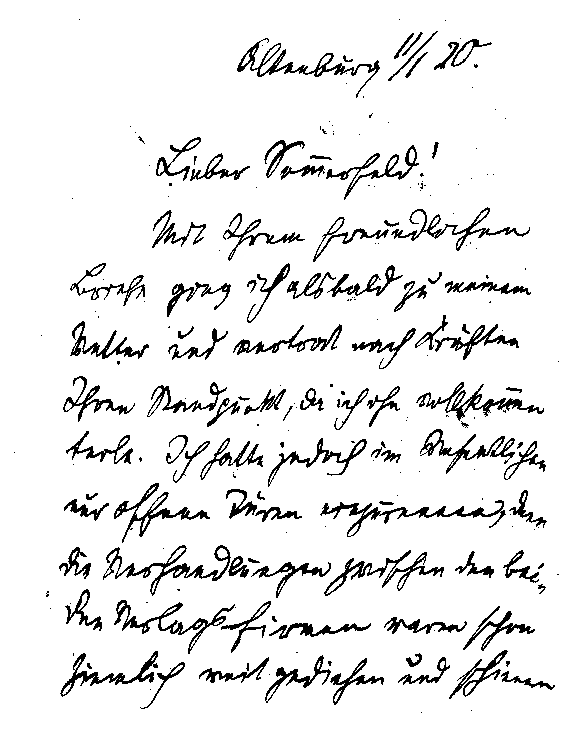 Altenburg 11/1 20.
Lieber Sommerfeld!
Mit Ihrem freundlichen
Briefe ging ich alsbald zu meinem
Vetter und vertrat nach Kräften
Ihren Standpunkt, da ich ihn vollkommen
teile. Ich hatte jedoch im Wesentlichen
nur offene Türen einzurennen, denn
die Verhandlungen zwischen den bei-
den Verlagsfirmen waren schon
ziemlich weit gediehen und schienen